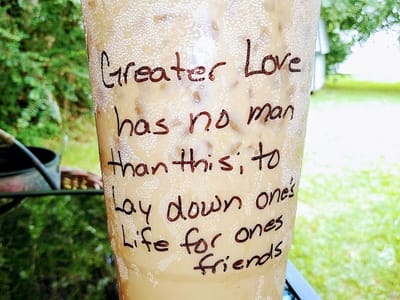 Greater Love
has no man
than this; to
Lay down one's
Life for ones
friends